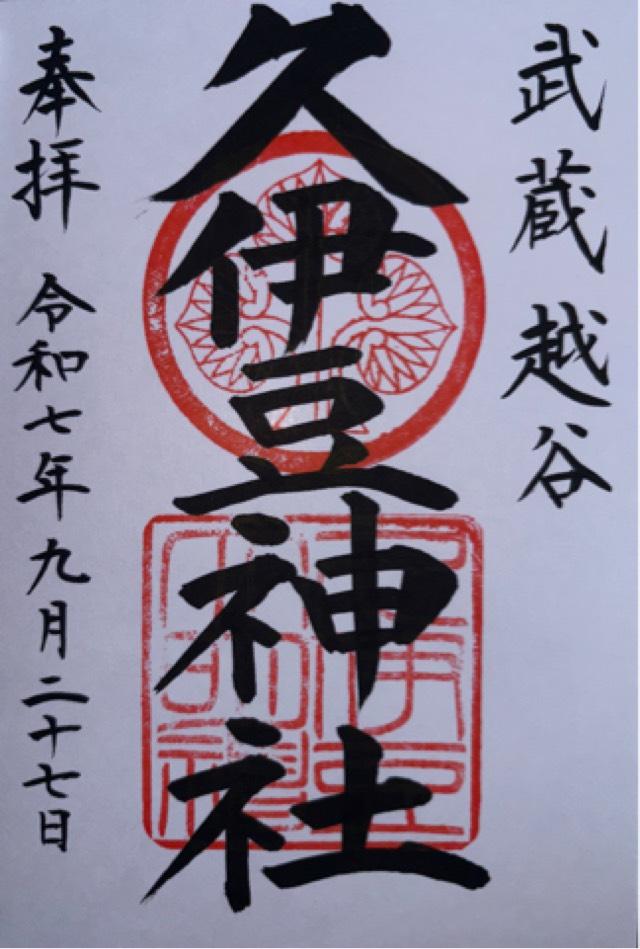 武蔵越谷
久伊豆神社
奉拝 令和七年九月二十七日